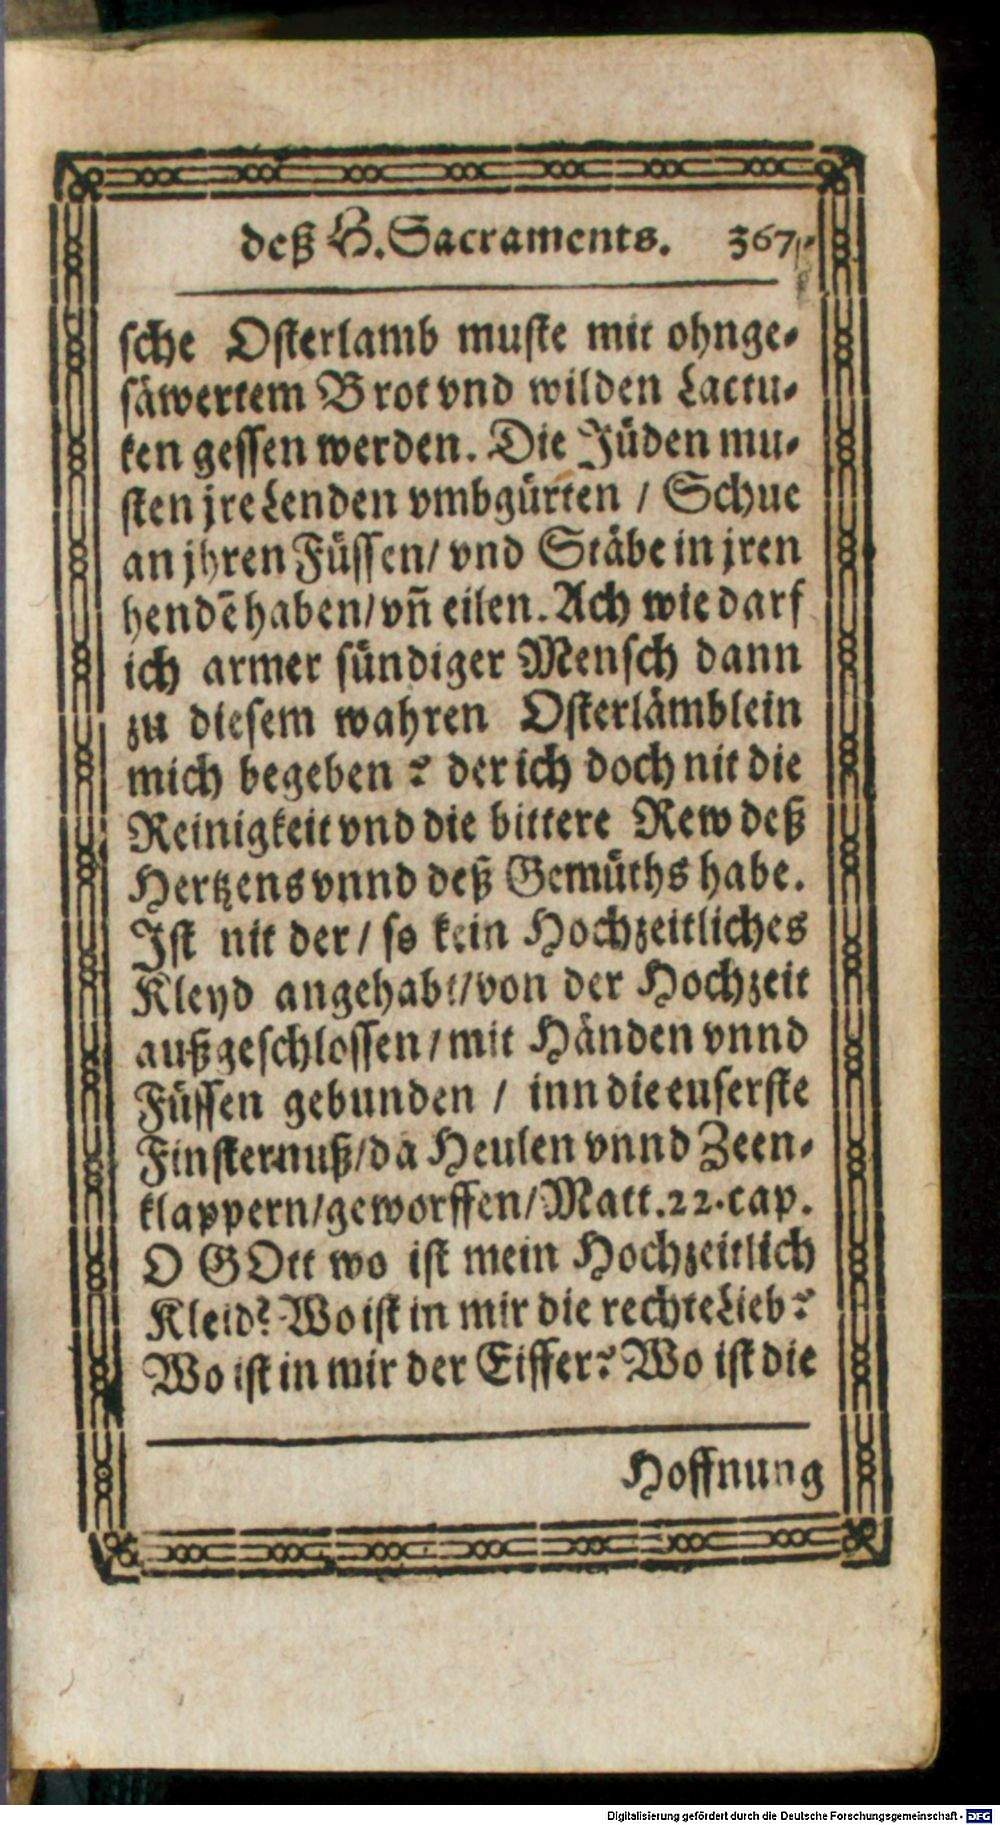 deß H. Sacraments. 367
sche Osterlamb muste mit ohnge-
säwertem Brot vnd wilden Lactu-
ken gessen werden. Die Jüden mu-
sten jre Lenden vmbgürten / Schue
an jhren Füssen/ vnd Stäbe in jren
hendē haben/ vñ eilen. Ach wie darf
ich armer sündiger Mensch dann
zu diesem wahren Osterlämblein
mich begeben? der ich doch nit die
Reinigkeit vnd die bittere Rew deß
Hertzens vnnd deß Gemüths habe.
Ist nit der / so kein Hochzeitliches
Kleyd angehabt/ von der Hochzeit
außgeschlossen / mit Händen vnnd
Füssen gebunden / inn die euserste
Finsternuß/ da Heulen vnnd Zeen-
klappern/ geworffen/ Matt. 22. cap.
O GOtt wo ist mein Hochzeitlich
Kleid? Wo ist in mir die rechte Lieb?
Wo ist in mir der Eiffer? Wo ist die
Hoffnung
Digitalisierung gefördert durch die Deutsche Forschungsgemeinschaft - DFG